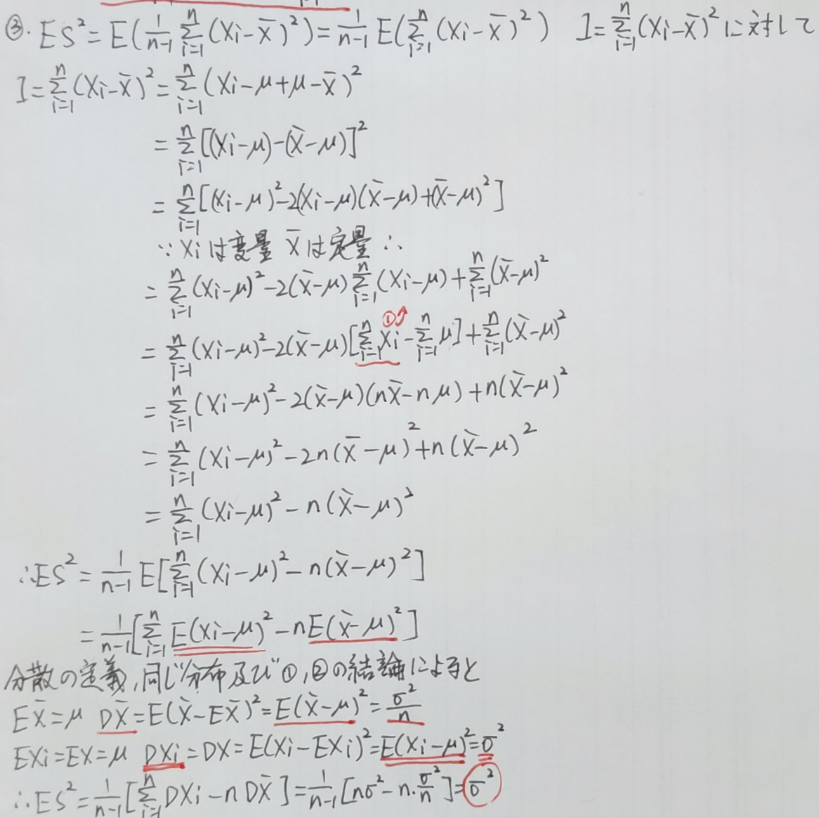 ③. ES²=E(1/(n-1) Σ_{i=1}^{n}(Xi-X̄)²)=1/(n-1) E(Σ_{i=1}^{n}(Xi-X̄)²) I=Σ_{i=1}^{n}(Xi-X̄)²に対して
I=Σ_{i=1}^{n}(Xi-X̄)²=Σ_{i=1}^{n}(Xi-μ+μ-X̄)²
=Σ_{i=1}^{n}[(Xi-μ)-(X̄-μ)]²
=Σ_{i=1}^{n}[(Xi-μ)²-2(Xi-μ)(X̄-μ)+(X̄-μ)²]
∵Xiは変量 X̄は定量∴
=Σ_{i=1}^{n}(Xi-μ)²-2(X̄-μ)Σ_{i=1}^{n}(Xi-μ)+Σ_{i=1}^{n}(X̄-μ)²
①
=Σ_{i=1}^{n}(Xi-μ)²-2(X̄-μ)[Σ_{i=1}^{n}Xi-Σ_{i=1}^{n}μ]+Σ_{i=1}^{n}(X̄-μ)²
=Σ_{i=1}^{n}(Xi-μ)²-2(X̄-μ)(nX̄-nμ)+n(X̄-μ)²
=Σ_{i=1}^{n}(Xi-μ)²-2n(X̄-μ)²+n(X̄-μ)²
=Σ_{i=1}^{n}(Xi-μ)²-n(X̄-μ)²
∴ES²=1/(n-1) E[Σ_{i=1}^{n}(Xi-μ)²-n(X̄-μ)²]
=1/(n-1)[Σ_{i=1}^{n}E(Xi-μ)²-nE(X̄-μ)²]
分散の定義,同じ分布及び①,②の結論によると
EX̄=μ DX̄=E(X̄-EX̄)²=E(X̄-μ)²=σ²/n
EXi=EX=μ DXi=DX=E(Xi-EXi)²=E(Xi-μ)²=σ²
∴ES²=1/(n-1)[Σ_{i=1}^{n}DXi-nDX̄]=1/(n-1)[nσ²-n·σ²/n]=σ²